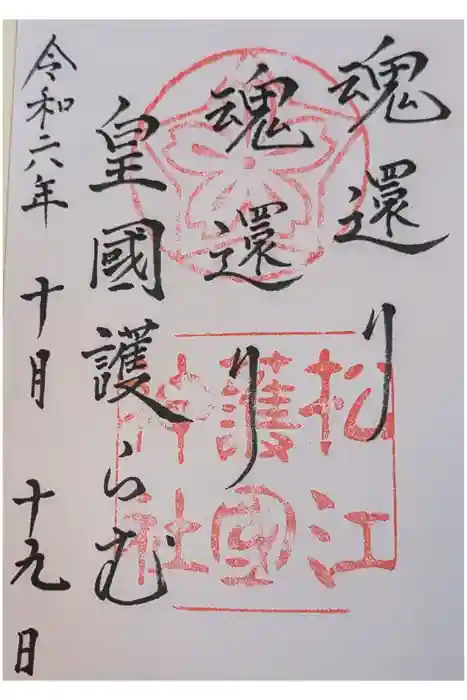 魂還り
魂還り
皇國護らむ
令和六年 十月 十九日
松江
護國
神社